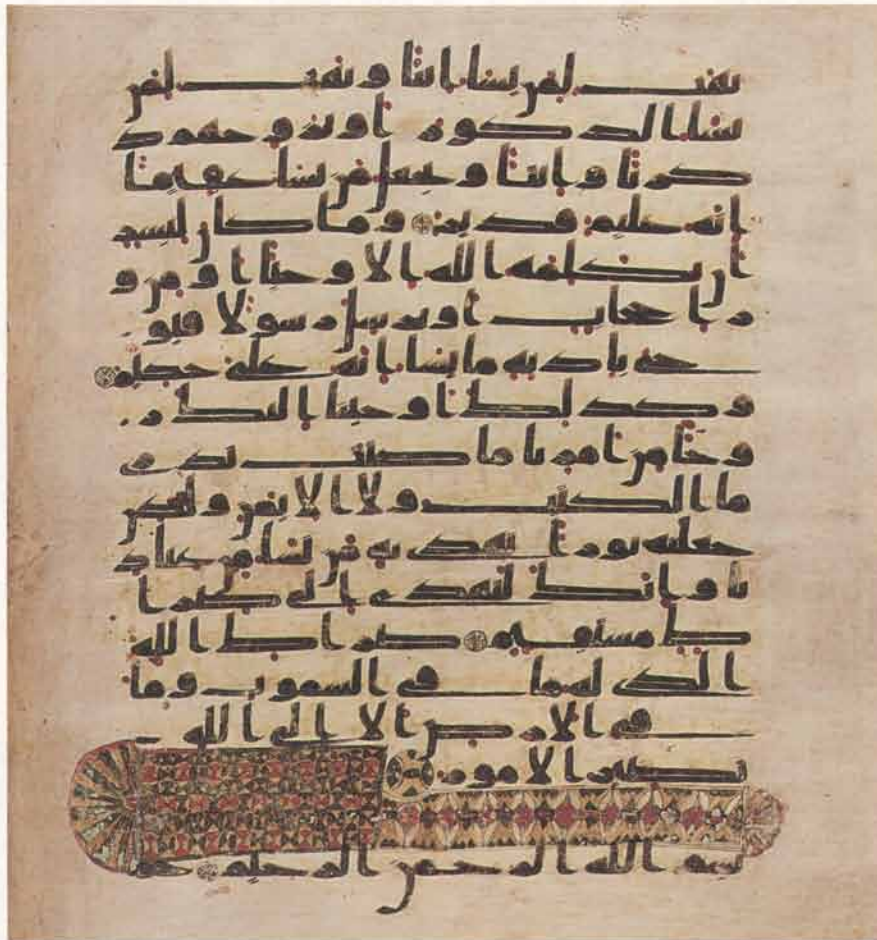 يهب لمن يشا انثا ويهب لمن
يشا الذكور او يزوجهم ذ
كرنا وانثا ويجعل من يشا عقيما
انه عليم قدير وما كان لبشر
ان يكلمه الله الا وحيا او من و
راى حجاب او يرسل رسولا فيو
حي باذنه ما يشا انه علي حكيم
وكذلك اوحينا اليك ر
وحا من امرنا ما كنت تدري
ما الكتب ولا الايمن ولكن
جعلنه نورا نهدي به من نشا من عباد
نا وانك لتهدي الى صرا
ط مستقيم صرط الله
الذي له ما في السموت وما
في الارض الا الى الله
تصير الامور
بسم الله الرحمن الرحيم حم